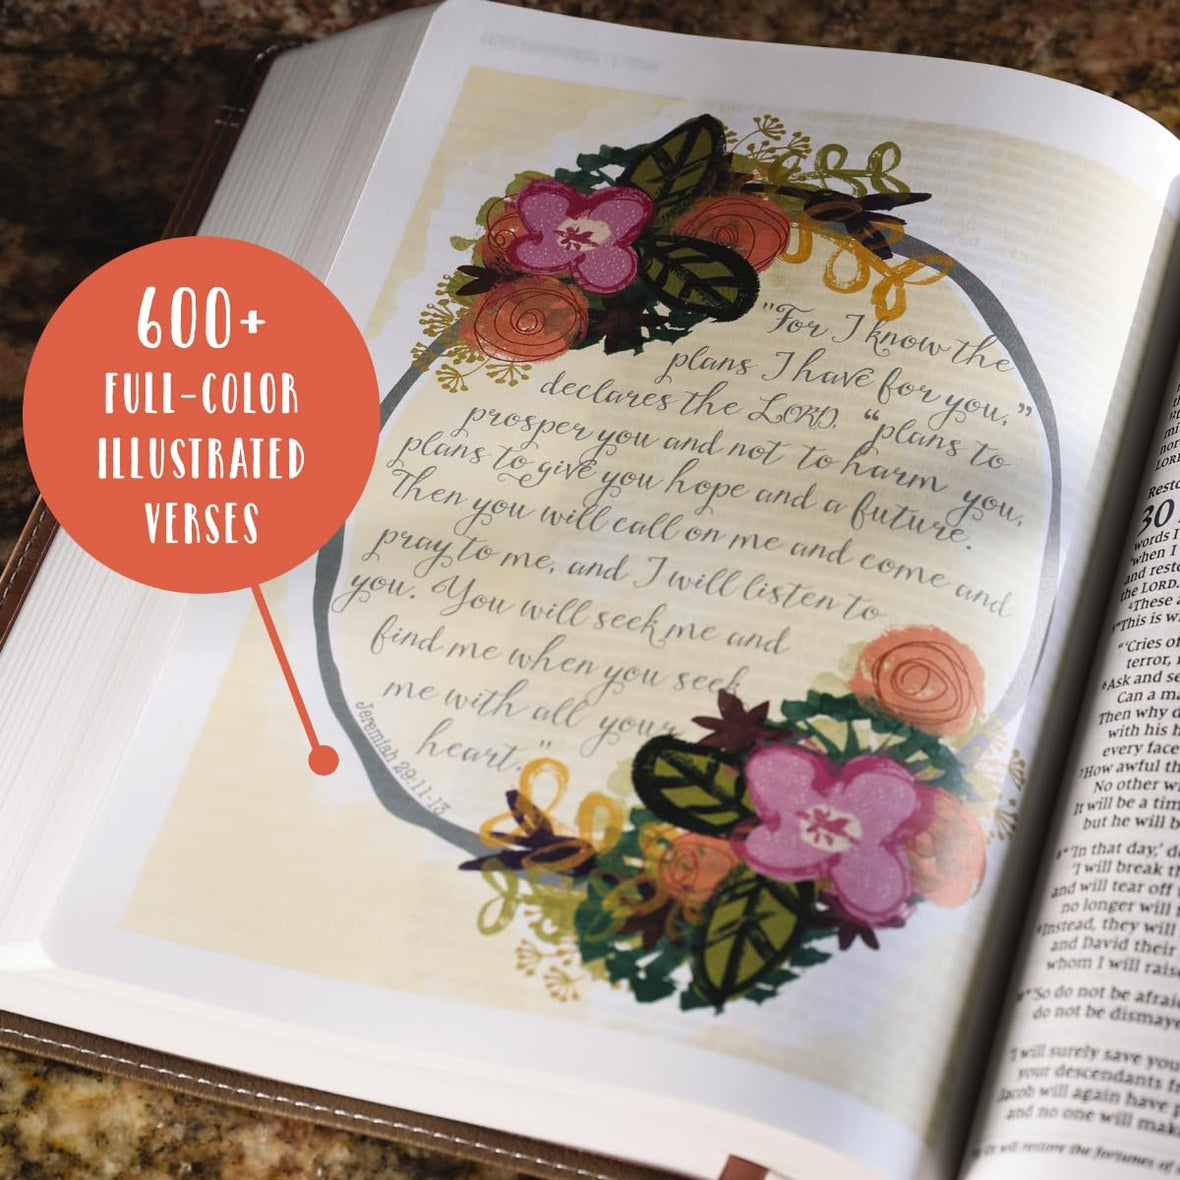 600+
FULL-COLOR
ILLUSTRATED
VERSES
"For I know the
plans I have for you,"
declares the LORD, "plans to
prosper you and not to harm you,
plans to give you hope and a future.
Then you will call on me and come and
pray to me, and I will listen to
you. You will seek me and
find me when you seek
me with all your
heart."
Jeremiah 29:11-13
LORD
30
words I
"when I
and resto
the LORD.
These a
"This is w
"'Cries of
terror,
Ask and se
Can a ma
Then why d
with his h
every face
How awful th
No other wi
It will be a tim
but he will b
"'In that day,' de
'I will break th
and will tear off
no longer will
Instead, they will
and David their
whom I will raise
"'So do not be afraid
do not be dismaye
'I will surely save you
your descendants fr
Jacob will again have p
and no one will mak
will restore the fortunes of